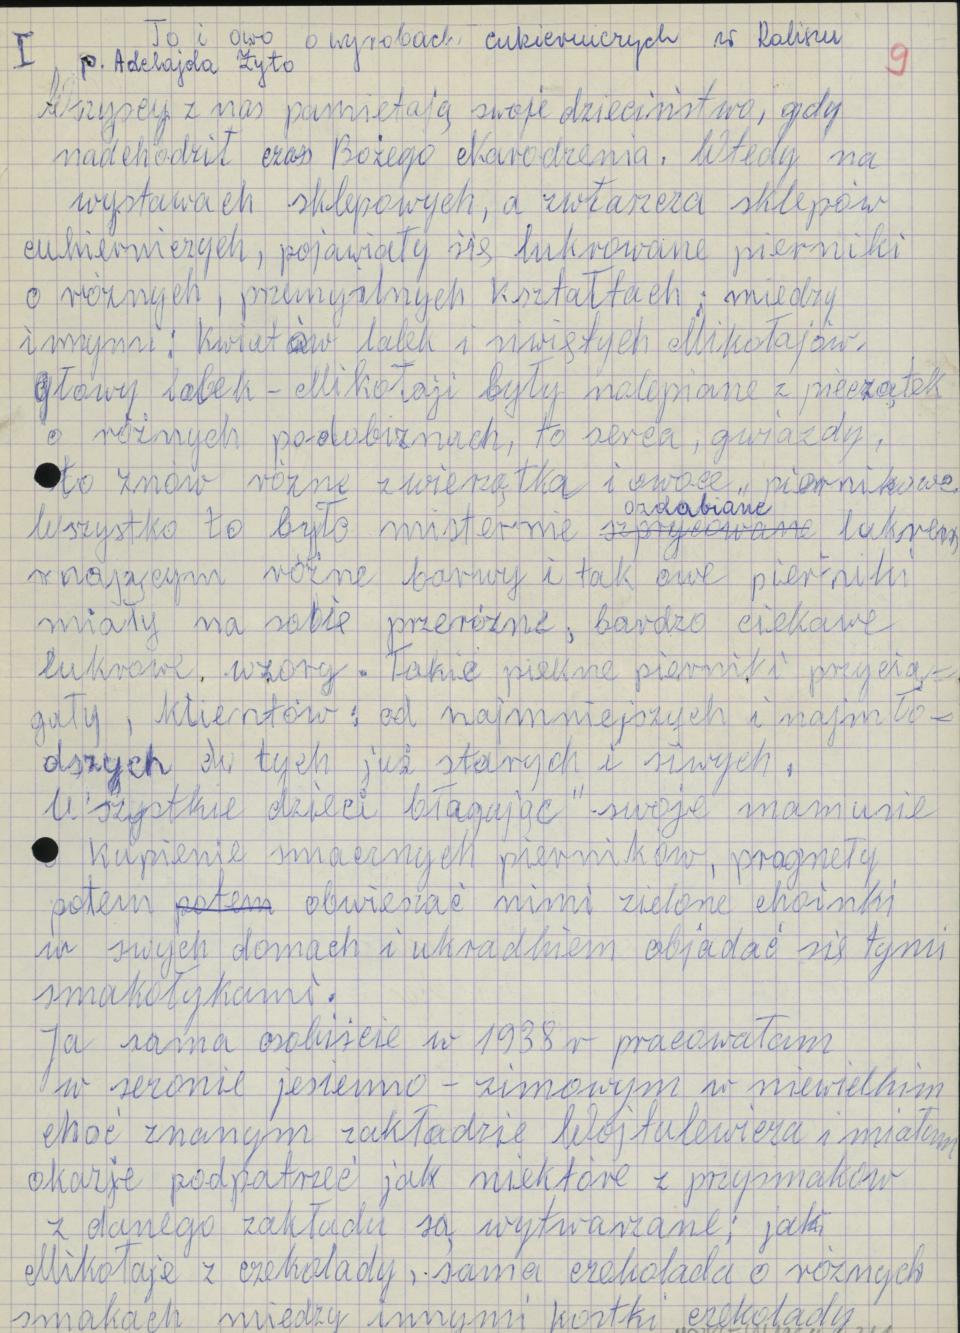 To i owo o wyrobach cukierniczych w Kaliszu
I p. Adelajda Żyto
9
Wszyscy z nas pamiętają swoje dzieciństwo, gdy
nadchodził czas Bożego Narodzenia. Wtedy na
wystawach sklepowych, a zwłaszcza sklepów
cukierniczych, pojawiały się lukrowane pierniki
o różnych, przemyślnych kształtach; między
innymi: kwiatów lalek i świętych Mikołajów.
głowy lalek - Mikołaji były nalepiane z pieczątek
o różnych podobiznach, to serca, gwiazdy,
to znów różne zwierzątka i owoce „piernikowe.
ozdabiane
Wszystko to było misternie szprycowane lukrem
mającym różne barwy i tak owe pierniki
miały na sobie przeróżne, bardzo ciekawe
lukrowe wzory. Takie piękne pierniki przycią-
gały, klientów: od najmniejszych i najmło-
dszych do tych już starych i siwych.
Wszystkie dzieci błagając" swoje mamusie
o kupienie smacznych pierników, pragnęły
potem potem obwieszać nimi zielone choinki
w swych domach i ukradkiem objadać się tymi
smakołykami.
Ja sama osobiście w 1938 r pracowałam
w sezonie jesienno - zimowym w niewielkim
choć znanym zakładzie Wojtulewicza i miałam
okazje podpatrzeć jak niektóre z przysmaków
z danego zakładu są wytwarzane; jak
Mikołaje z czekolady, sama czekolada o różnych
smakach między innymi kostki czekolady